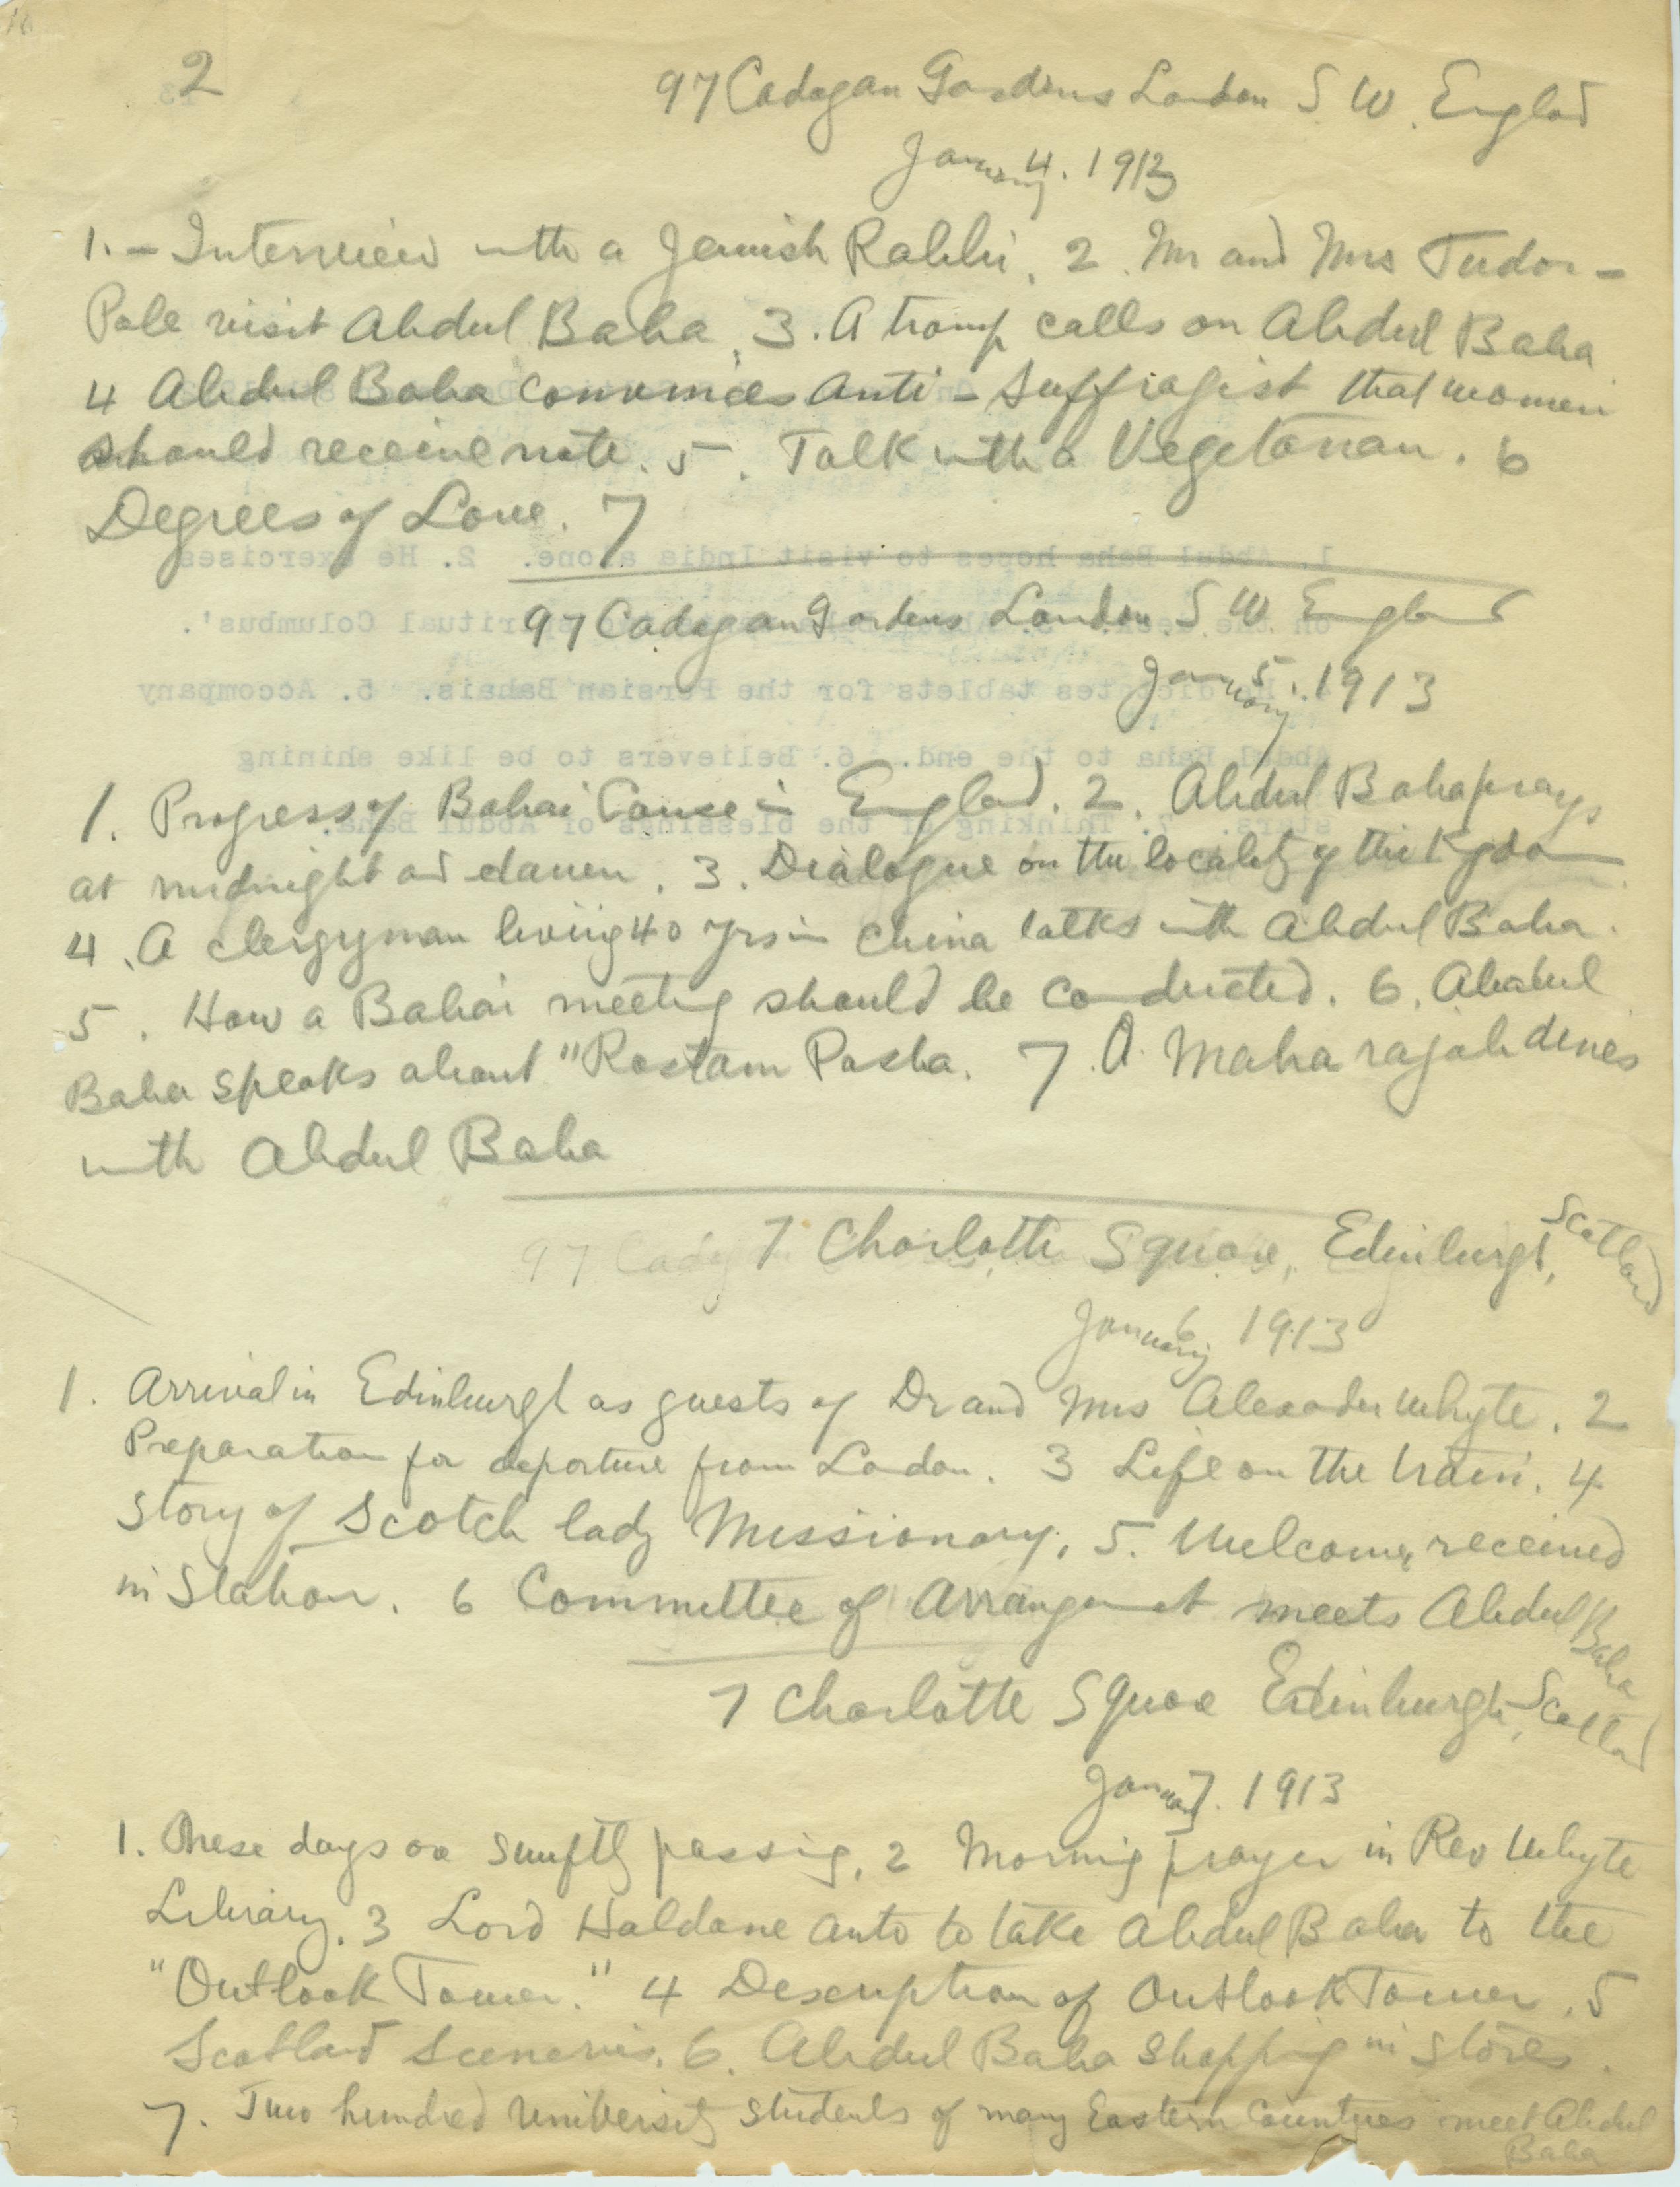 2
97 Cadogan Gardens London S. W. England
January 4. 1913
1. - Interview with a Jewish Rabbi. 2. Mr and Mrs Tudor-
Pole visit Abdul Baha. 3. A tramp calls on Abdul Baha
4 Abdul Baha convinces Anti-Suffragist that women
should receive vote. 5. Talk with a Vegetarian. 6
Degrees of Love. 7
97 Cadogan Gardens London S W England
January 5. 1913
1. Progress of Bahai Cause in England. 2. Abdul Baha prays
at midnight and dawn. 3. Dialogue on the locality of the Kingdom
4. A clergyman living 40 yrs in China talks with Abdul Baha.
5. How a Bahai meeting should be conducted. 6. Abdul
Baha speaks about "Rostam Pasha. 7. A Maharajah dines
with Abdul Baha
97 Cadog
7 Charlotte Square, Edinburgh, Scotland
January 6 1913
1. Arrival in Edinburgh as guests of Dr and Mrs Alexander Whyte. 2
Preparation for departure from London. 3 Life on the train. 4
Story of Scotch lady Missionary. 5. Welcome received
in Station. 6 Committee of Arrangement meets Abdul Baha
7 Charlotte Square Edinburgh, Scotland
January 7. 1913
1. These days are swiftly passing. 2 Morning prayer in Rev Whyte
Library. 3 Lord Haldane auto to take Abdul Baha to the
"Outlook Tower." 4 Description of Outlook Tower. 5
Scotland Sceneries. 6. Abdul Baha shopping in Stores.
7. Two hundred University Students of many Eastern Countries meet Abdul
Baha